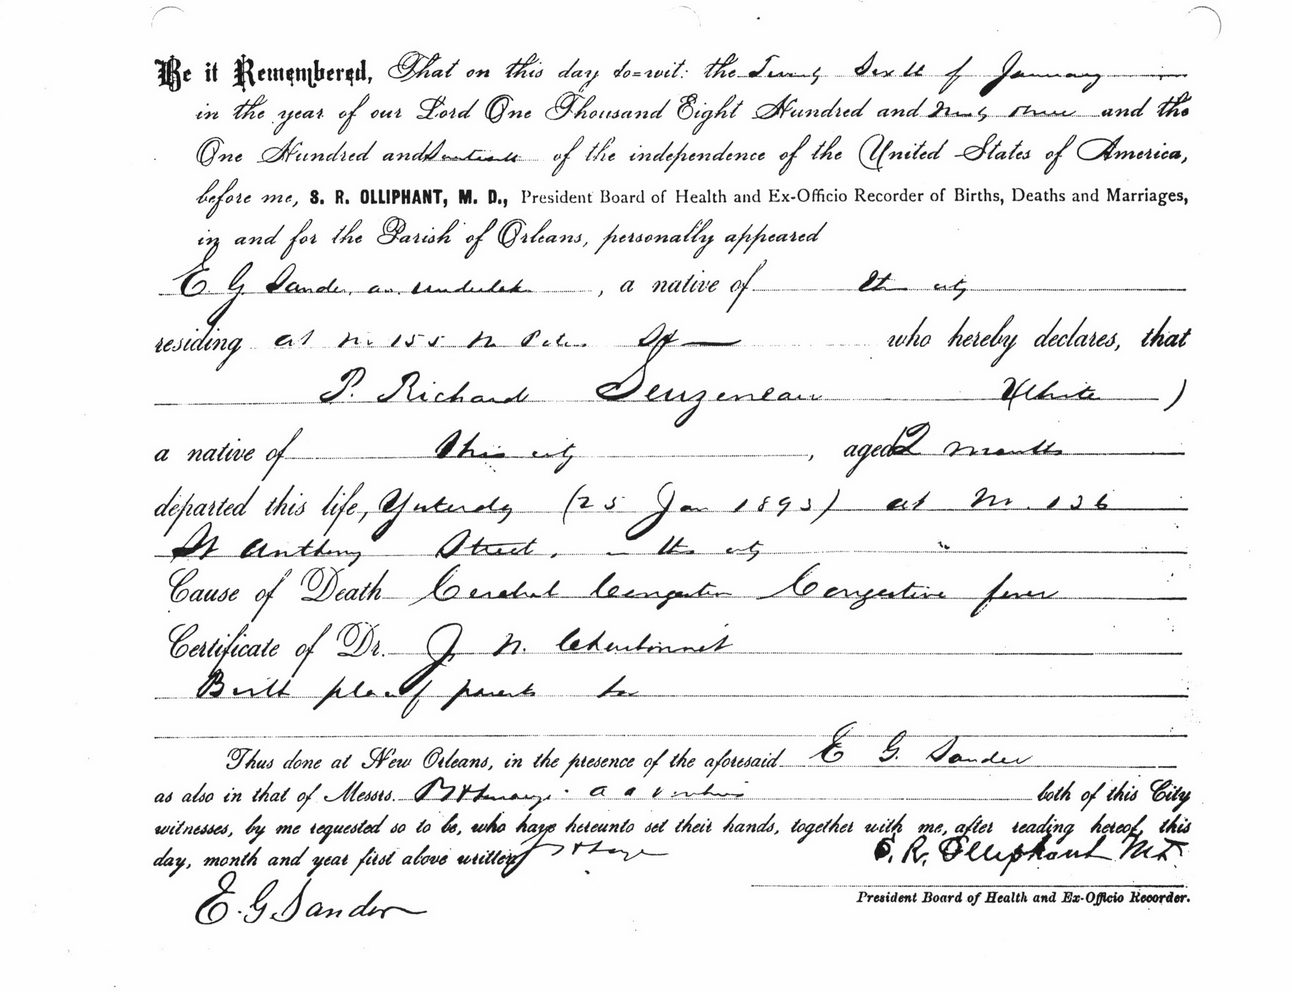 Be it Remembered, That on this day to=wit: the Twenty Sixth of January
in the year of our Lord One Thousand Eight Hundred and Ninety three and the
One Hundred and Seventeenth of the independence of the United States of America,
before me, S. R. OLLIPHANT, M. D., President Board of Health and Ex-Officio Recorder of Births, Deaths and Marriages,
in and for the Parish of Orleans, personally appeared
E G Sander, an undertaker, a native of this city
residing at No 155 N Peters St who hereby declares, that
P. Richard Senzeneau (White)
a native of this city, aged 2 months
departed this life, Yesterday (25 Jan 1893) at No. 136
St Anthony Street, in this city
Cause of Death Cerebral Congestion Congestive fever
Certificate of Dr. J. N. Charbonnet
Birth place of parents
Thus done at New Orleans, in the presence of the aforesaid E G. Sander
as also in that of Messrs. both of this City
witnesses, by me requested so to be, who have hereunto set their hands, together with me, after reading hereof, this
day, month and year first above written
S. R. Olliphant M.D.
E. G. Sander
President Board of Health and Ex-Officio Recorder.